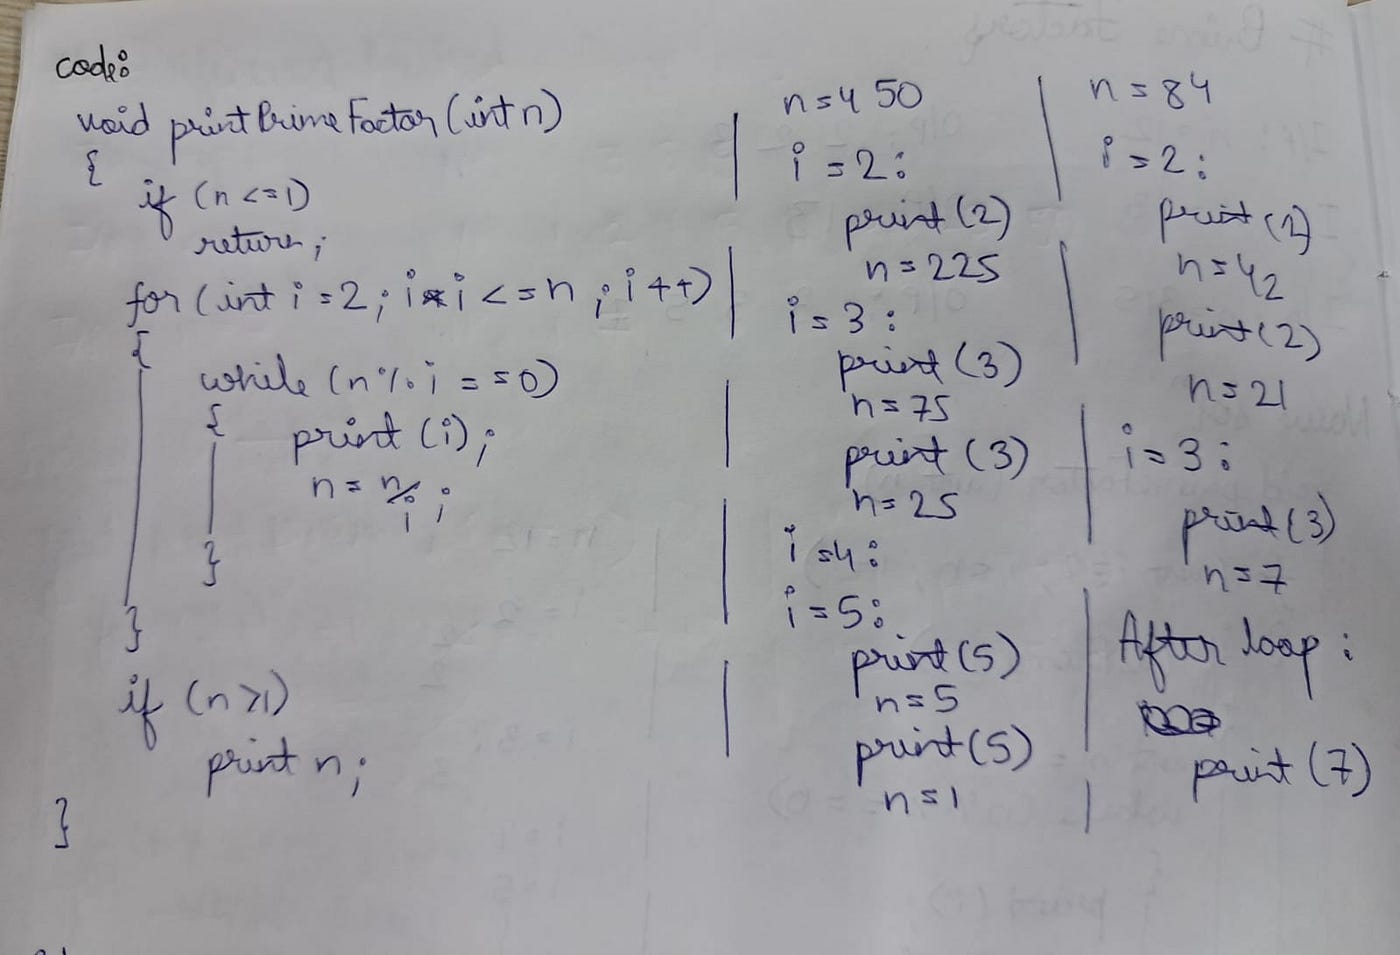 code:
void printPrimeFactor(int n)
{
if (n <= 1)
return;
for (int i = 2; i*i <= n; i++)
{
while (n % i == 0)
{
print (i);
n = n/i;
}
}
if (n > 1)
print n;
}
n = 450
i = 2:
print (2)
n = 225
i = 3:
print (3)
n = 75
print (3)
n = 25
i = 4:
i = 5:
print (5)
n = 5
print (5)
n = 1
n = 84
i = 2:
print (2)
n = 42
print (2)
n = 21
i = 3:
print (3)
n = 7
After loop:
print (7)